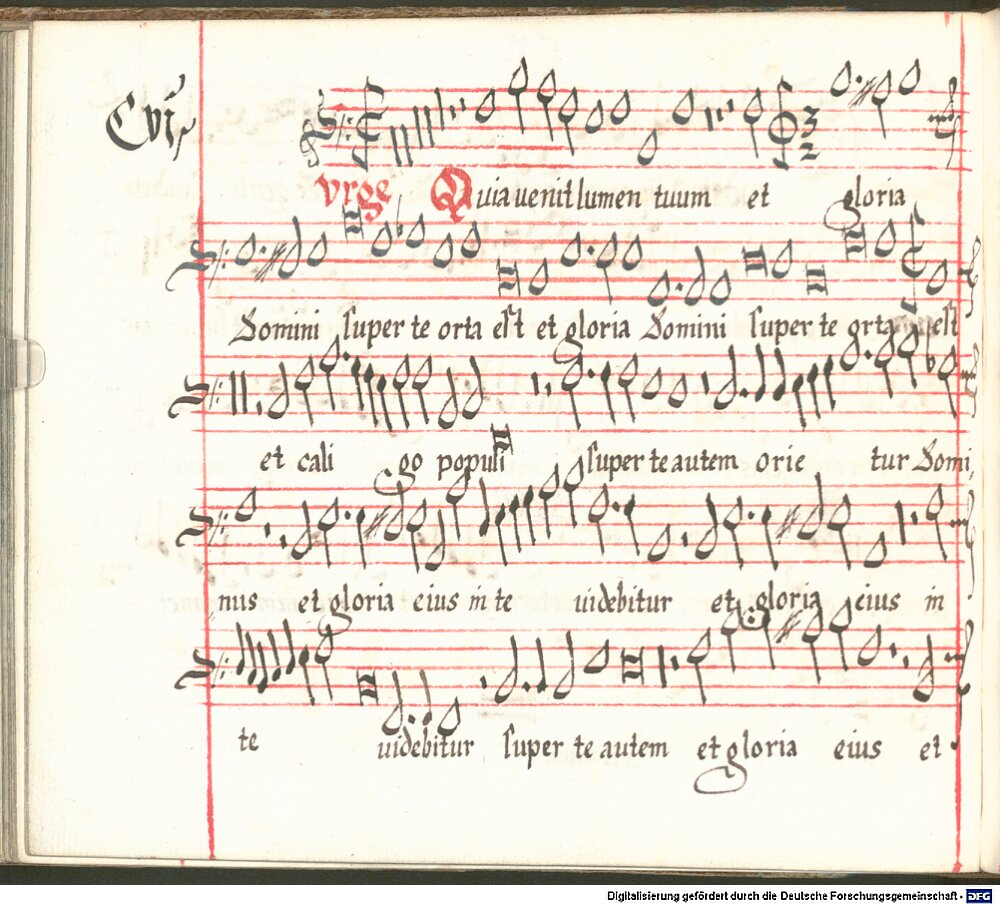 vrge Quia uenit lumen tuum et gloria
Domini super te orta est et gloria Domini super te orta est
et cali go populi super te autem orie tur Domi,
nus et gloria eius in te uidebitur et gloria eius in
te uidebitur super te autem et gloria eius et
Digitalisierung gefördert durch die Deutsche Forschungsgemeinschaft - DFG